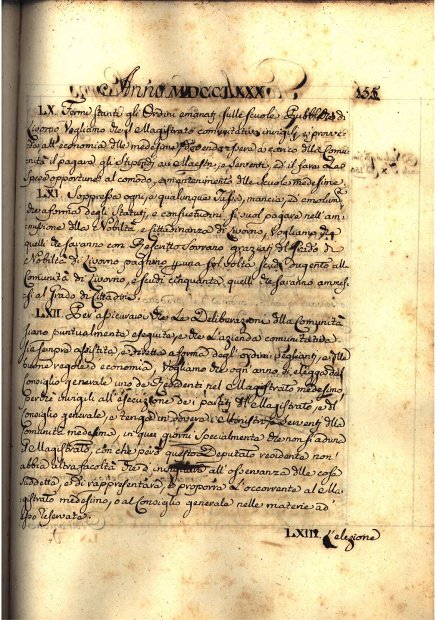 Anno MDCCLXXX
LX. Ferme stanti gli Ordini emanati sulle scuole Pubbliche di
Livorno Vogliamo che il Magistrato comunitativo invigili, e provve-
da all'economia delle medesime, dovendo essere a carico della Comu-
nità il pagare gli Stipendj ai Maestri, e Serventi, ed il fare le
spese opportune al comodo, e mantenimento delle scuole medesime.
LXI. Soppressa ogni, e qualunque Tassa, mancia, ed emolum.
che a forma degli Statuti, e consuetudini si suol pagare nell'am-
missione alla Nobiltà, e Cittadinanza di Livorno, Vogliamo che
quelli che saranno con Rescritto Sovrano graziati del Grado di
Nobiltà di Livorno paghino per una sol volta scudi dugento alla
Comunità di Livorno, e scudi cinquanta quelli che saranno ammes-
si al grado di Cittadini.
LXII. Per assicurarci che Le Deliberazioni della Comunità
siano puntualmente eseguite, e che L'azienda comunitativa
sia sempre assistita, e diretta a forma degl'ordini veglianti, e delle
buone regole d'economia, Vogliamo che ogn'anno si elegga dal
Consiglio generale uno de Residenti nel Magistrato medesimo
perchè invigili all'esecuzione dei partiti del Magistrato, e del
Consiglio generale, e tenga in dovere i Ministri, e Serventi della
Comunità medesima, in quei giorni specialmente che non si aduna
il Magistrato, con che però questo Deputato residente non
abbia altra facoltà che d'invigilare all'osservanza delle cose
suddette, e di rappresentare, e proporre L'occorrente al Ma-
gistrato medesimo, o al Consiglio generale nelle materie ad
esso riservate.
LXIII. L'elezione